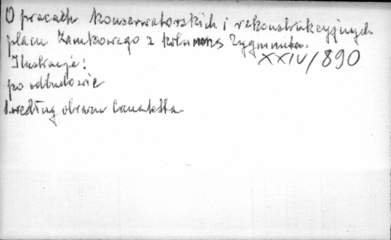 O pracach konserwatorskich i rekonstrukcyjnych
placu Zamkowego z kolumną Zygmunta.
Ilustracje:
XXIV/890
po odbudowie
według obrazu Canaletta